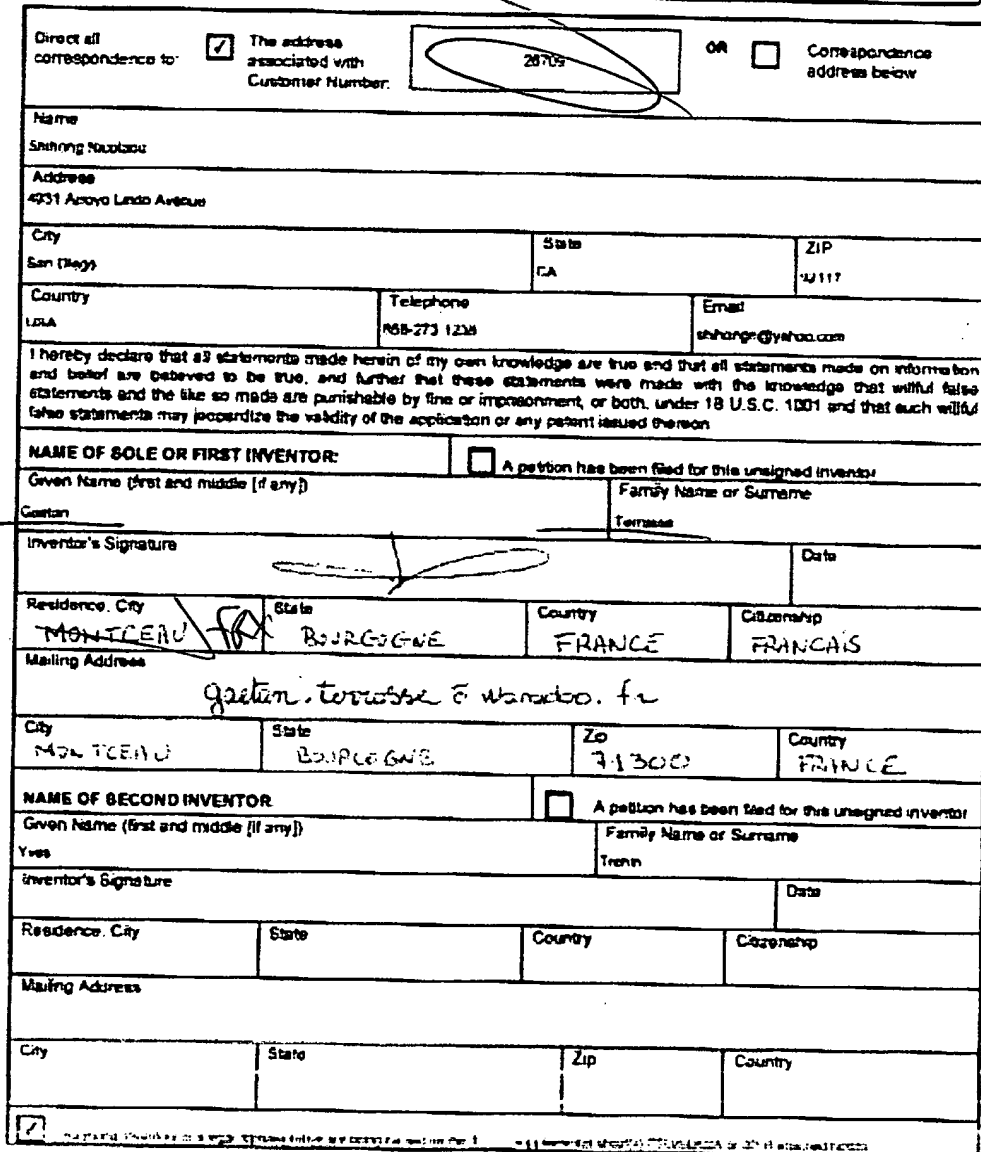 Direct all correspondence to: The address associated with Customer Number: 26709 OR Correspondence address below
Name
Shihong Nicolaou
Address
4931 Arroyo Lindo Avenue
City State ZIP
San Diego CA 92117
Country Telephone Email
USA 858-273 1238 shihonge@yahoo.com
I hereby declare that all statements made herein of my own knowledge are true and that all statements made on information
and belief are believed to be true, and further that these statements were made with the knowledge that willful false
statements and the like so made are punishable by fine or imprisonment, or both, under 18 U.S.C. 1001 and that such willful
false statements may jeopardize the validity of the application or any patent issued thereon
NAME OF SOLE OR FIRST INVENTOR: A petition has been filed for this unsigned inventor
Given Name (first and middle [if any]) Family Name or Surname
Gaetan Terrasse
Inventor's Signature Date
Residence. City State Country Citizenship
MONTCEAU BOURGOGNE FRANCE FRANCAIS
Mailing Address
gaetan.terrosse @ wanadoo.fr
City State Zip Country
MONTCEAU BOURGOGNE 71300 FRANCE
NAME OF SECOND INVENTOR A petition has been filed for this unsigned inventor
Given Name (first and middle [if any]) Family Name or Surname
Yves
Inventor's Signature Date
Residence. City State Country Citizenship
Mailing Address
City State Zip Country